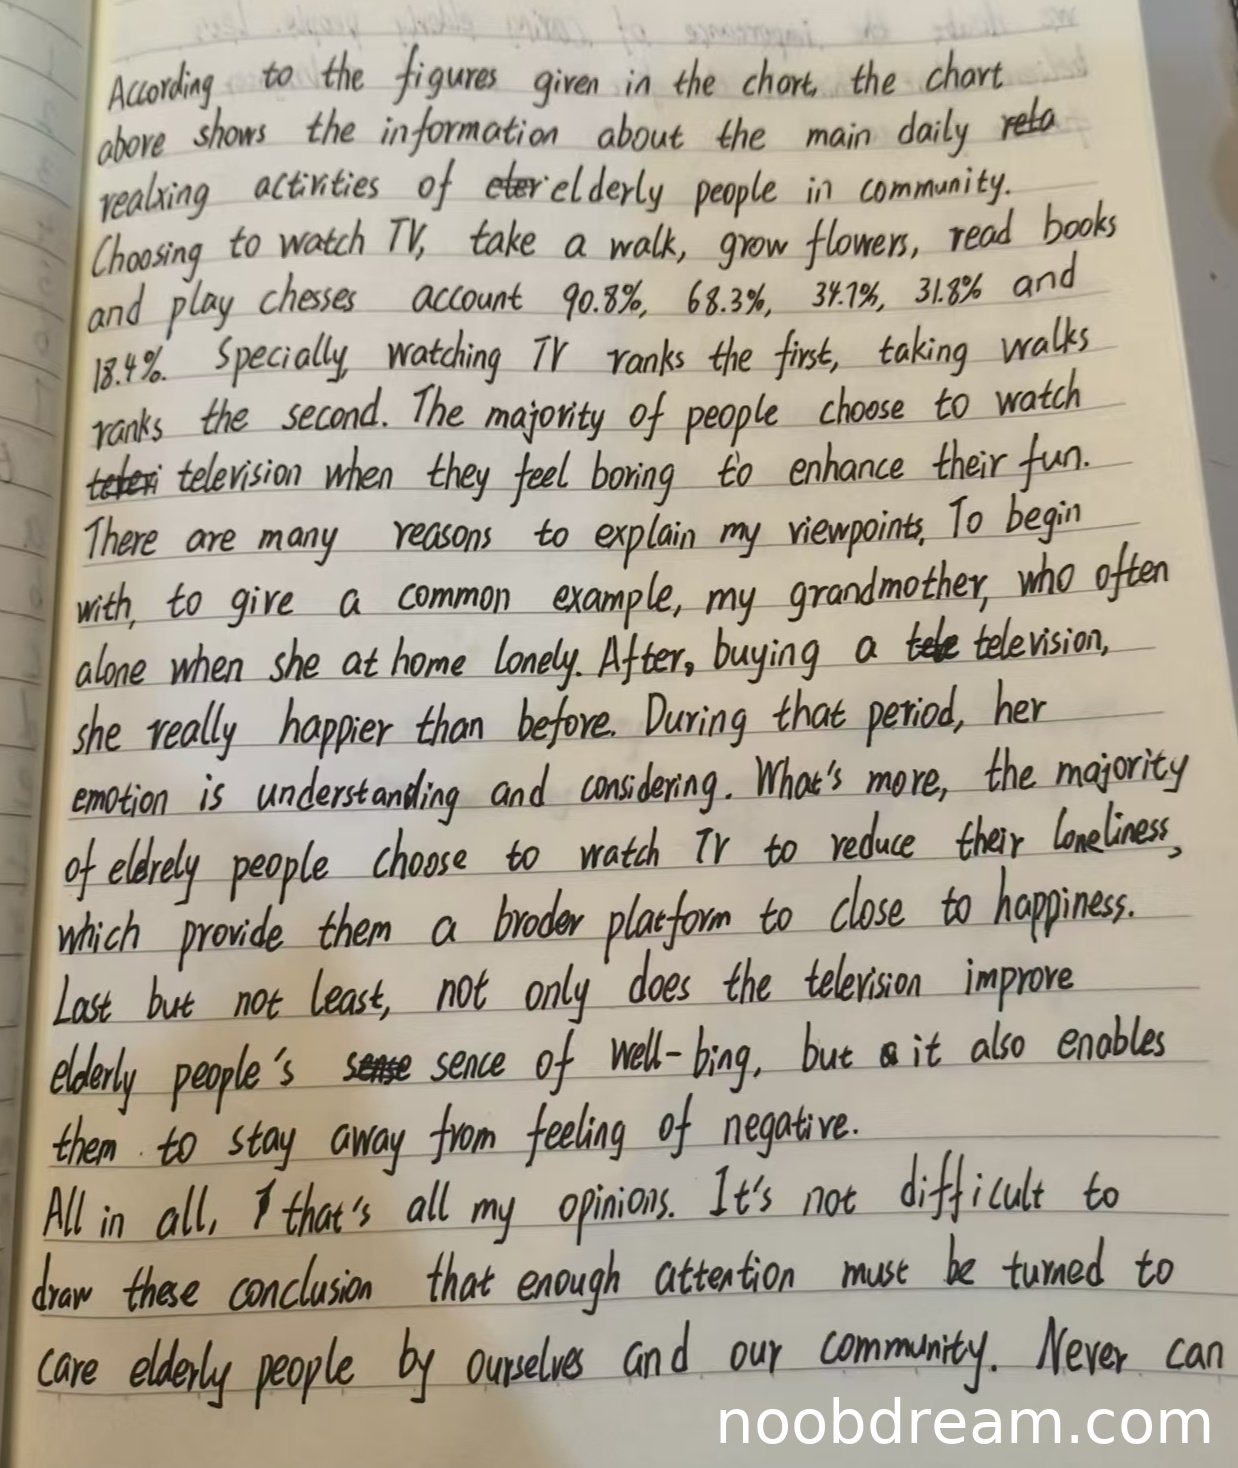 According to the figures given in the chart, the chart
above shows the information about the main daily rela
realxing activities of eter elderly people in community.
Choosing to watch TV, take a walk, grow flowers, read books
and play chesses account 90.8%, 68.3%, 34.7%, 31.8% and
18.4%. Specially, watching TV ranks the first, taking walks
ranks the second. The majority of people choose to watch
television when they feel boring to enhance their fun.
There are many reasons to explain my viewpoints, To begin
with, to give a common example, my grandmother, who often
alone when she at home lonely. After, buying a tele television,
she really happier than before. During that period, her
emotion is understanding and considering. What's more, the majority
of eldrely people choose to watch TV to reduce their loneliness,
which provide them a broder platform to close to happiness.
Last but not least, not only does the television improve
elderly people's sense sence of well-bing, but it also enables
them to stay away from feeling of negative.
All in all, that's all my opinions. It's not difficult to
draw these conclusion that enough attention must be turned to
care elderly people by ourselves and our community. Never can
noobdream.com